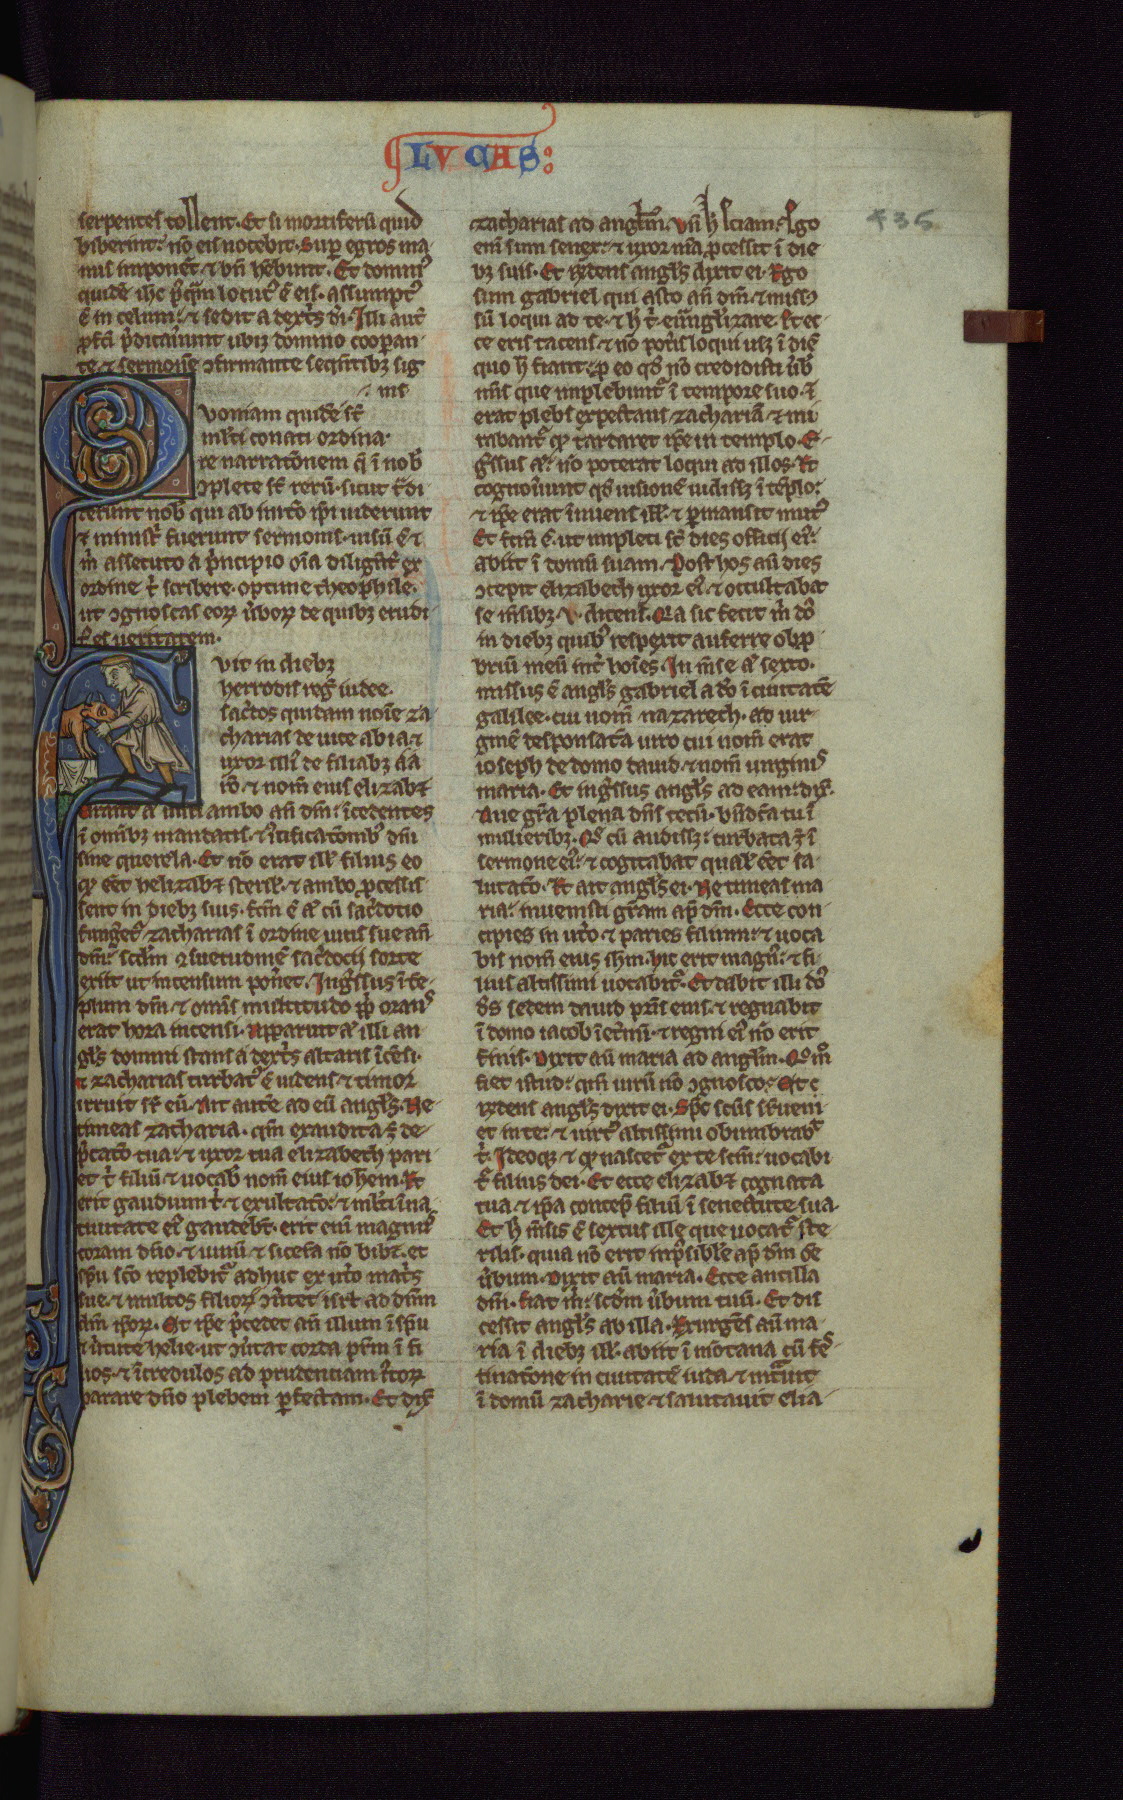 LVCAS:
435
serpentes tollent. Et si mortiferū quid
biberint: nō eis nocebit. Sup egros ma-
nus imponēt ⁊ bn̄ hēbunt. Et domin᷒
quidē ihc p̾q̄m locut᷒ ē eis. assumpt᷒
ē in celum: ⁊ sedit a dext᷑s di. Illi aut̄
p̱fc̄i p̾dicauunt ubiq; domino coopan-
te. ⁊ sermonē ↄfirmante seqn̄tib; sig
nis
Quoniam quidē st̄
ml̄ti conati ordina-
re narratōnem q̄ ī nob̄
ↄplete st̄ rerū. sicut t᷑di
derunt nob̄ qui ab initō ip̄i uiderunt
⁊ ministri fuerunt sermonis. uisū ē ⁊
m̄ assecuto a p̾ncipio oīa diligēt᷑ ex
ordine t̄ scribere. optime theophile.
ut ↄgnoscas eoꝝ ūboꝝ de quib; erudi-
t᷒ es ueritatem.
Fuit in dieb;
herrodis reḡ iudee.
sac̄dos quidam noīe za-
charias de uice abia ⁊
uxor illi᷒ de filiab; aa
rō. ⁊ nom̄ eius elizab⁊
Erant a᷒ iusti ambo an̄ dm̄: īcedentes
ī omīb; mandatis. ⁊ iustificatōnib᷒ dn̄i
sine querela. Et nō erat ill᷒ filius eo
q̱ eēt helizab⁊ steril᷒. ⁊ ambo p̱cessis
sent in dieb; suis. fc̄m ē a᷒ cū sac̄dotio
fungeret᷑ zacharias ī ordine uicis sue an̄
dm̄: scdm̄ ↄsuetudinē sac̄docii sorte
exiit ut incensum poneret. Ing̾ssus ī te-
plum dn̄i. ⁊ omīs multitudo pp̄li orans
erat hora incensi. Apparuit a᷒ illi an
gl̄s domini stans a dext᷑s altaris īcēsi.
⁊ zacharias turbat᷒ ē uidens. ⁊ timor
irruit sr̄ eū. Ait autē ad eū angl̄s. Ne
timeas zacharia. qm̄ exaudita ē de-
p̾catō tua: ⁊ uxor tua elizabech pari
et t̄ filiū ⁊ uocab᷒ nom̄ eius ioħem. Et
erit gaudium t̄. ⁊ exultatō: ⁊ ml̄ti ī na-
tiuitate ei᷒ gaudebt̄. erit eni magnus
coram dn̄o. ⁊ uinū ⁊ sicera nō bib⁊. et
spū sc̄o replebit᷑ adhuc ex ut̾o mat᷑s
sue. ⁊ multos filioꝝ ↄūtet isrl̄ ad dn̄m
dm̄ ip̄oꝝ. Et ip̄e p̾cedet an̄ illum ī spū
⁊ ūtute helie. ut ↄūtat corda pr̄m ī fi
lios. ⁊ īcredulos ad prudentiam iustoꝝ
parare dn̄o plebem p̱fectam. Et dix̄
zacharias ad angl̄m. Vn̄ h̄ sciam. Ego
eni sum senex: ⁊ uxor m̄a p̱cessit ī die
b; suis. Et r̄ndens angl̄s dixit ei. Ego
sum gabriel qui asto an̄ dm̄. ⁊ miss᷒
sū loqui ad te. ⁊ h̄ t̄ euu̾nglizare. Et ec-
ce eris tacens ⁊ nō pot̾is loqui usq; ī diē
quo h̄ fiant. p̱ eo qd̄ nō credidisti ūb᷒
meis que implebunt᷑ ī tempore suo. ⁊
erat plebs expectans zachariā. ⁊ mi
rabant᷑ q̱ tardaret ip̄e in templo. E-
g̾ssus a᷒: nō poterat loqui ad illos. Et
cognouunt qd̄ uisionē uidiss; ī tēplo:
⁊ ip̄e erat īnuens ill᷒. ⁊ p̱mansit mut᷒
Et fc̄m ē. ut impleti st̄ dies officii ei᷒:
abiit ī domū suam. Post hos aū dies
ↄcepit elizabech uxor ei᷒. ⁊ occultabat
se m̄sib; .v. dicens. Q̄a sic fecit m̄ dn̄s
in dieb; quib᷒ respexit auferre obp̱
brium meū int̾ hoīes. In m̄se a᷒ sexto.
missus ē angl̄s gabriel a dō ī ciuitatē
galilee. cui nom̄ nazarech. ad uir-
ginē desponsatā uiro cui nom̄ erat
ioseph de domo dauid. ⁊ nom̄ uirginis
maria. Et ing̾ssus angl̄s ad eam: dix̄.
Aue gr̄a plena dn̄s tecū. bn̄dc̄a tu ī
mulierib;. Q̄ cū audiss;: turbata ē ī
sermone ei᷒: ⁊ cogitabat qual᷒ eēt sa-
lutatō. Et ait angl̄s ei. Ne timeas ma
ria: inuenisti gr̄am ap̄ dm̄. Ecce con
cipies in ut̾o ⁊ paries filium: ⁊ uoca
bis nom̄ eius ihm. hic erit magn᷒: ⁊ fi
lius altissimi uocabit᷑. Et dabit illi dn̄s
ds̄ sedem dauid pr̄is eius. ⁊ regnabit
ī domo iacob īet̾nū. ⁊ regni ei᷒ nō erit
finis. Dixit aū maria ad angl̄m. Q̊mo
fiet istud: qm̄ uirū nō ↄgnosco: Et
r̄ndens angl̄s dixit ei. Spc̄ sc̄us sr̄ueni-
et in te: ⁊ uirt᷒ altissimi obumbrab᷒
t̄. Ideoq; ⁊ q̱ nascet᷑ ex te sc̄m: uocabi
t᷑ filius dei. Et ecce elizab⁊ cognata
tua ⁊ ip̄a concep̄ filiū ī senectute sua.
Et h̄ m̄sis ē sextus ille que uocat᷑ ste
rilis. quia nō erit imp̱sibile ap̄ dm̄ om̄e
ūbum. Dixit aū maria. Ecce ancilla
dn̄i. fiat m̄: scdm̄ ūbum tuū. Et dis
cessit angl̄s ab illa. Exurgēs aū ma-
ria ī dieb; ill᷒. abiit ī mōtana cū fes-
tinatōne in ciuitatē iuda. ⁊ int̾uit
ī domū zacharie. ⁊ salutauit elisa-